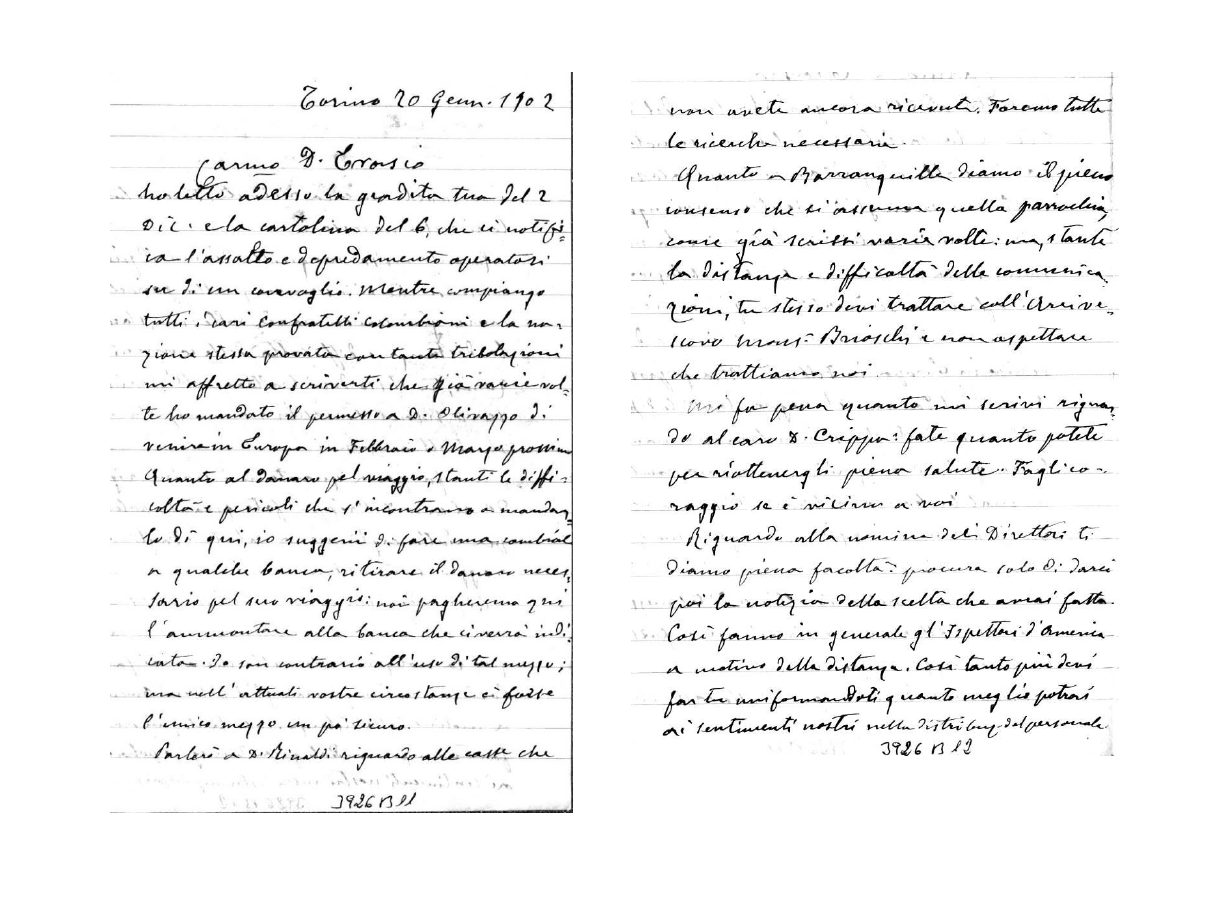 Torino 20 Genn. 1902
Carmo D. Evasio
ho letto adesso la gradita tua del 2
Dic. e la cartolina del 6, che ci notifi=
ca l'assalto e depredamento operatosi
su di un convoglio. Mentre compiango
tutti i cari Confratelli Colombiani e la na-
zione stessa provata con tante tribolazioni
mi affretto a scriverti che già varie vol-
te ho mandato il permesso a D. Olivazzo di
venire in Europa in Febbraio o Marzo prossimo
Quanto al danaro pel viaggio, stanti le diffi=
coltà e pericoli che s'incontrano a mandar,
lo di qui, io suggerii di fare una cambiale
a qualche banca, ritirare il danaro neces,
sario pel suo viaggio: noi pagheremo qui
l'ammontare alla banca che ci verrà indi,
cata. Io son contrario all'uso di tal mezzo;
ma nell'attuali vostre circostanze ci forse
l'unico mezzo un pò sicuro.
Parlerò a D. Rinaldi riguardo alle casse che
3926 B 11
non avete ancora ricevute. Faremo tutte
le ricerche necessarie.
Quanto a Barranquilla diamo il pieno
consenso che si assuma quella parrochia,
come già scrissi varie volte: ma, stante
la distanza e difficoltà delle comunica,
zioni, tu stesso devi trattare coll'Arcive-
scovo Mons. Brioschi e non aspettare
che trattiamo noi.
Mi fa pena quanto mi scrivi riguar,
do al caro D. Crippa: fate quanto potete
per riottenergli piena salute. Fagli co-
raggio se è vicino a voi
Riguardo alla nomina dei Direttori ti
diamo piena facoltà: procura solo di darci
poi la notizia della scelta che avrai fatta.
Così fanno in generale gl'Ispettori d'America
a motivo della distanza. Così tanto più devi
far tu uniformandoti quanto meglio potrai
ai sentimenti nostri nella distribuz. del personale
3926 B 12